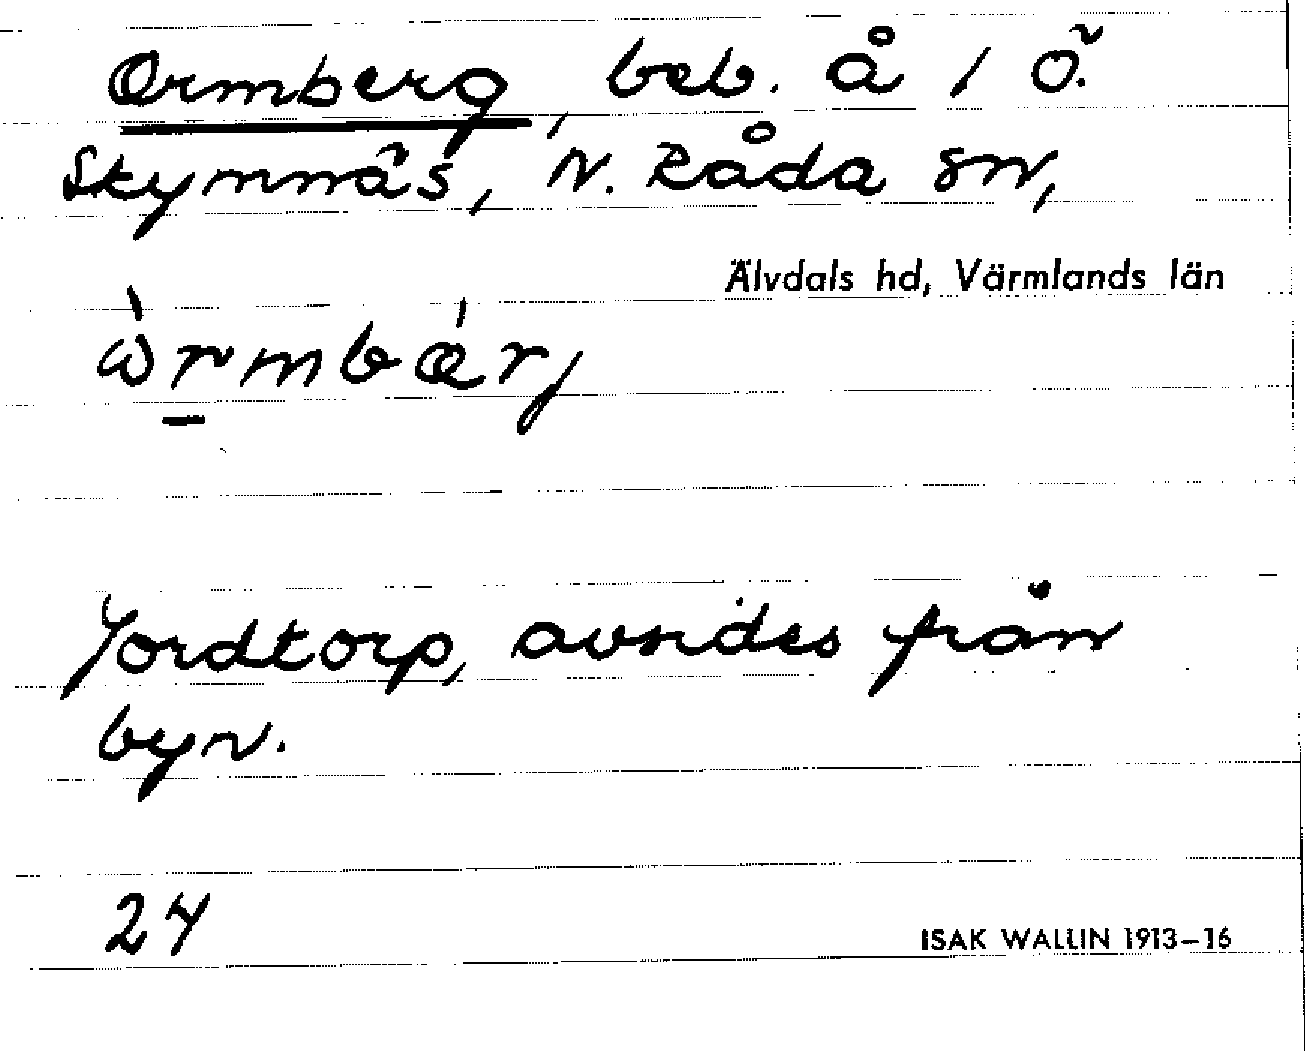 Ormberg, beb. å 1 Ö.
Skymnäs, N. Råda sn,
Älvdals hd, Värmlands län
Jordtorp, avsides från
byn.
24
ISAK WALLIN 1913–16